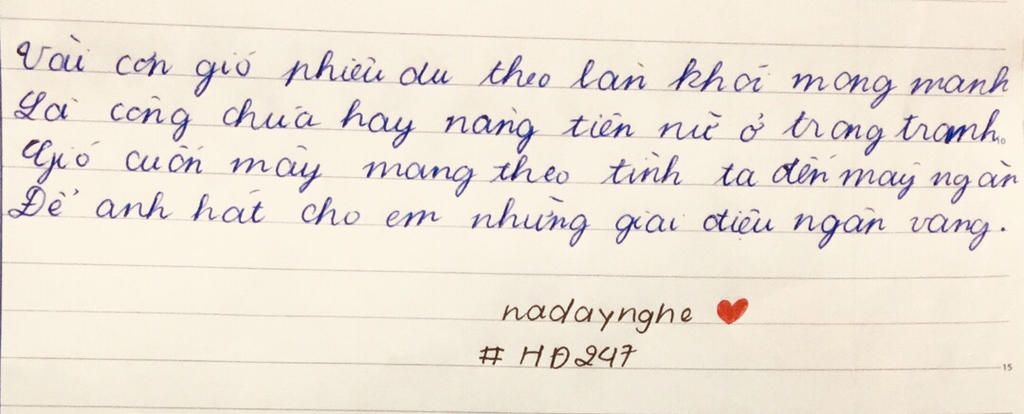 Vài cơn gió phiêu du theo làn khói mong manh
Là công chúa hay nàng tiên nữ ở trong tranh.
Gió cuốn mây mang theo tình ta đến mây ngàn
Để anh hát cho em những giai điệu ngân vang.
nadaynghe ❤
# HĐ247
15